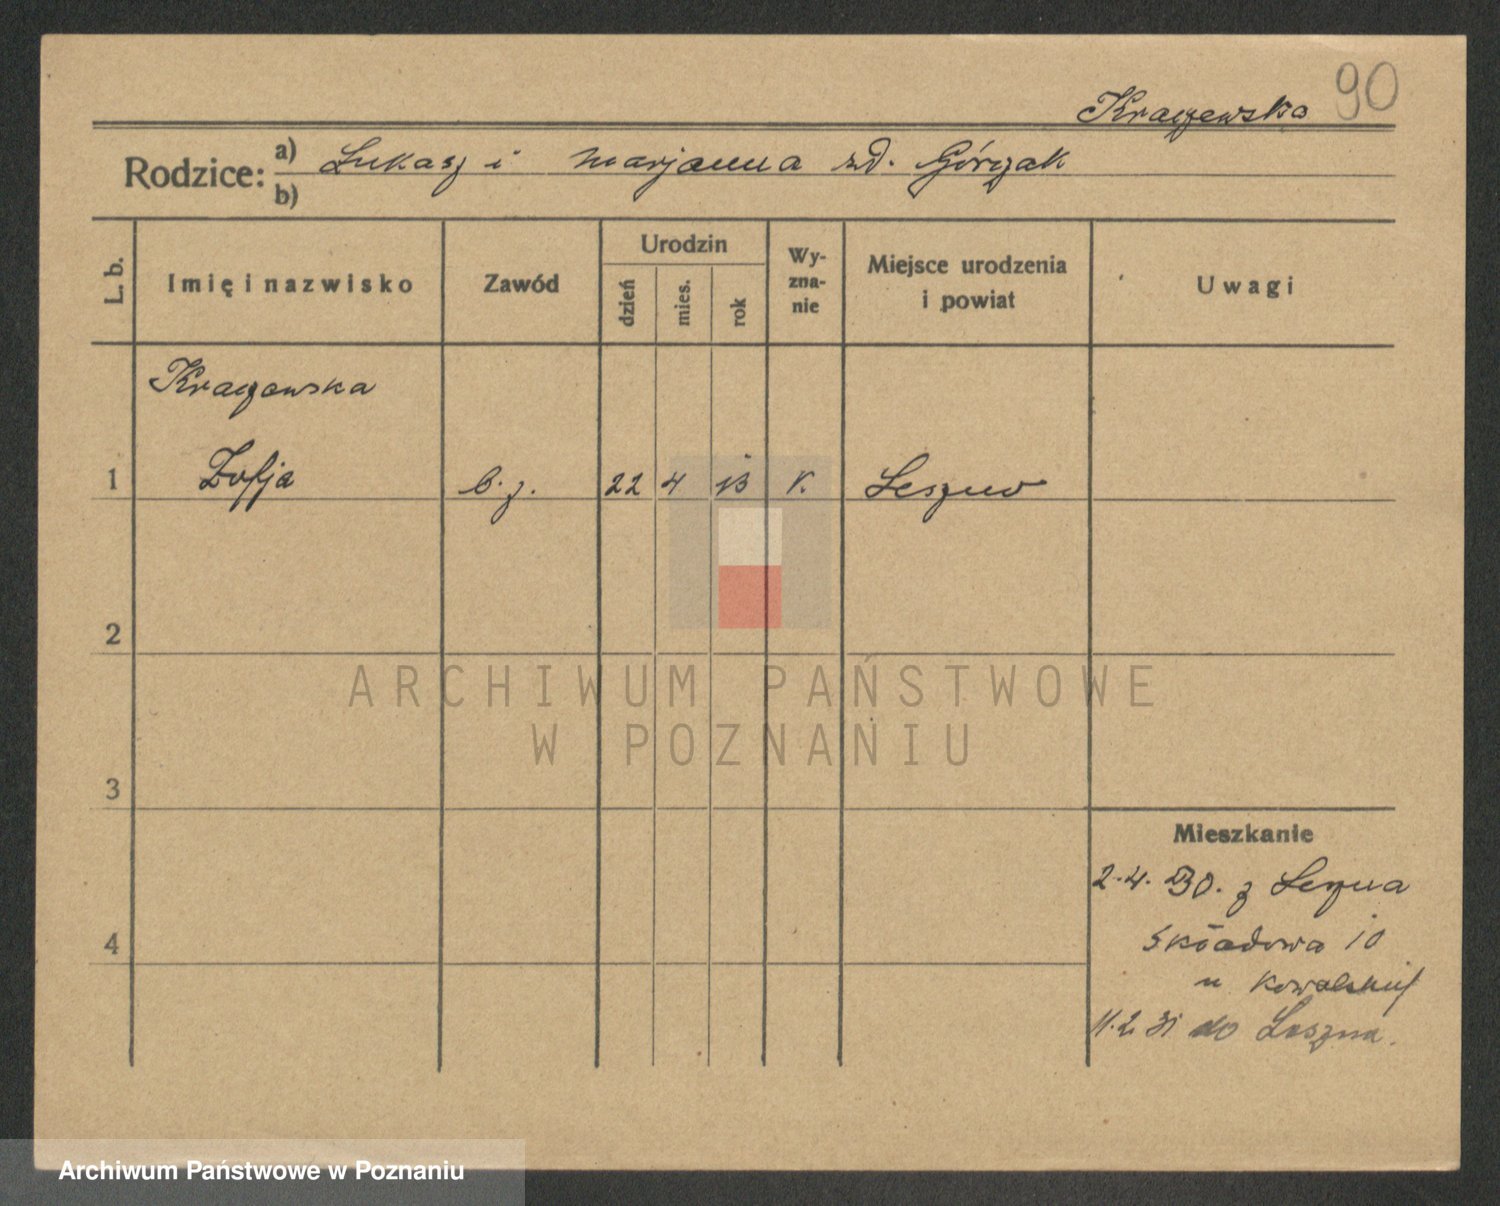 90
Kraczewska
Rodzice: a) Łukasz i Marjanna zd. Górczak
b)
L. b.
Imię i nazwisko
Zawód
Urodzin
dzień
mies.
rok
Wy-
zna-
nie
Miejsce urodzenia
i powiat
Uwagi
Kraczewska
1 Zofja b. z. 22 4 13 K. Leszno
2
3
4
Mieszkanie
2.4.30. z Leszna
Składowa 10
u Kowalskiej
11.2.31 do Leszna.
ARCHIWUM PAŃSTWOWE
W POZNANIU
Archiwum Państwowe w Poznaniu